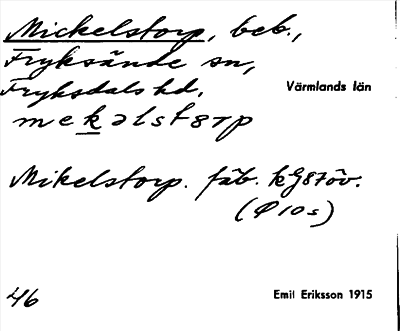 Mickelstorp, beb.,
Fryksände sn,
Fryksdals hd, Värmlands län
mekəlstɵrp
Mikelstorp. fäb.
46 Emil Eriksson 1915